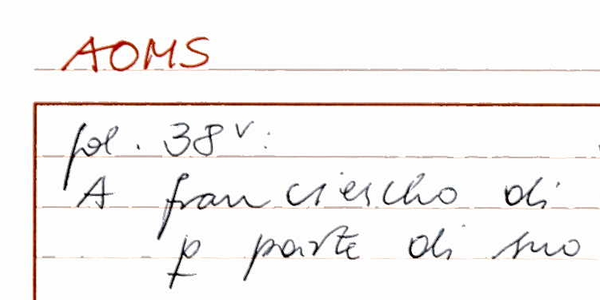 AOMS
fol. 38v:
A franciescho di
p parte di suo